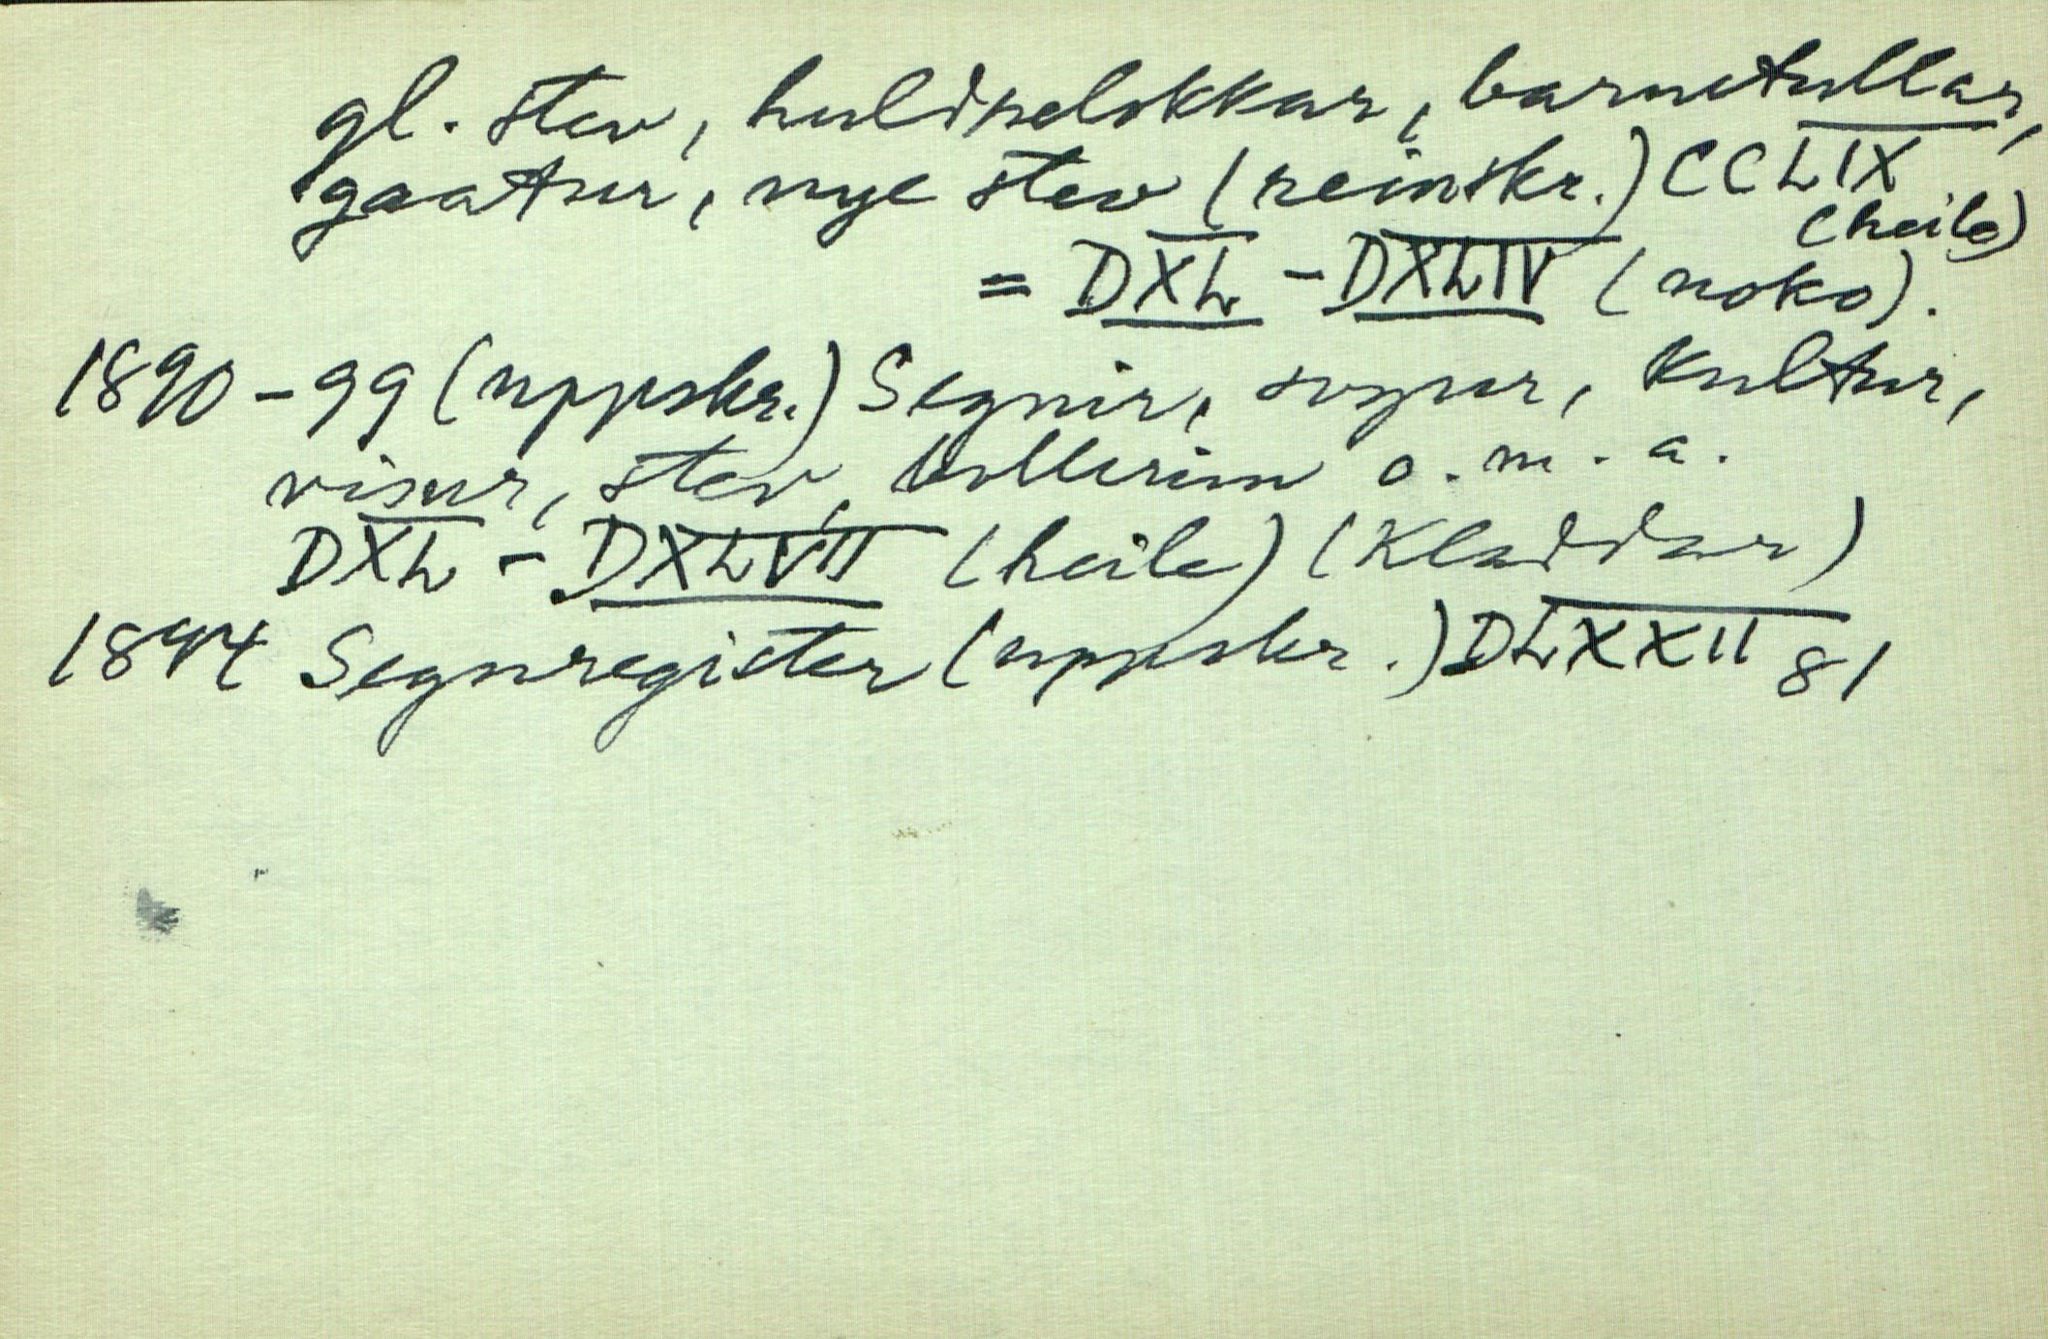 gl. stev, huldrelokkar, barnetullar,
gaatur, nye stev (reinskr.) CCLIX
(heile)
= DXL - DXLIV (noko).
1890-99 (uppskr.) Segnir, sogur, kultur,
visur, stev, bullerim o. m. a.
DXL - DXLVII (heile) (Kladdar)
1894 Segnregister (uppskr.) DLXXII 81